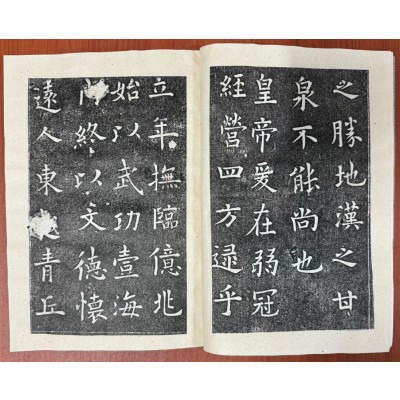 之勝地漢之甘
泉不能尚也
皇帝爰在弱冠
經營四方逮乎
立年撫臨億兆
始以武功壹海
内終以文德懷
遠人東青丘